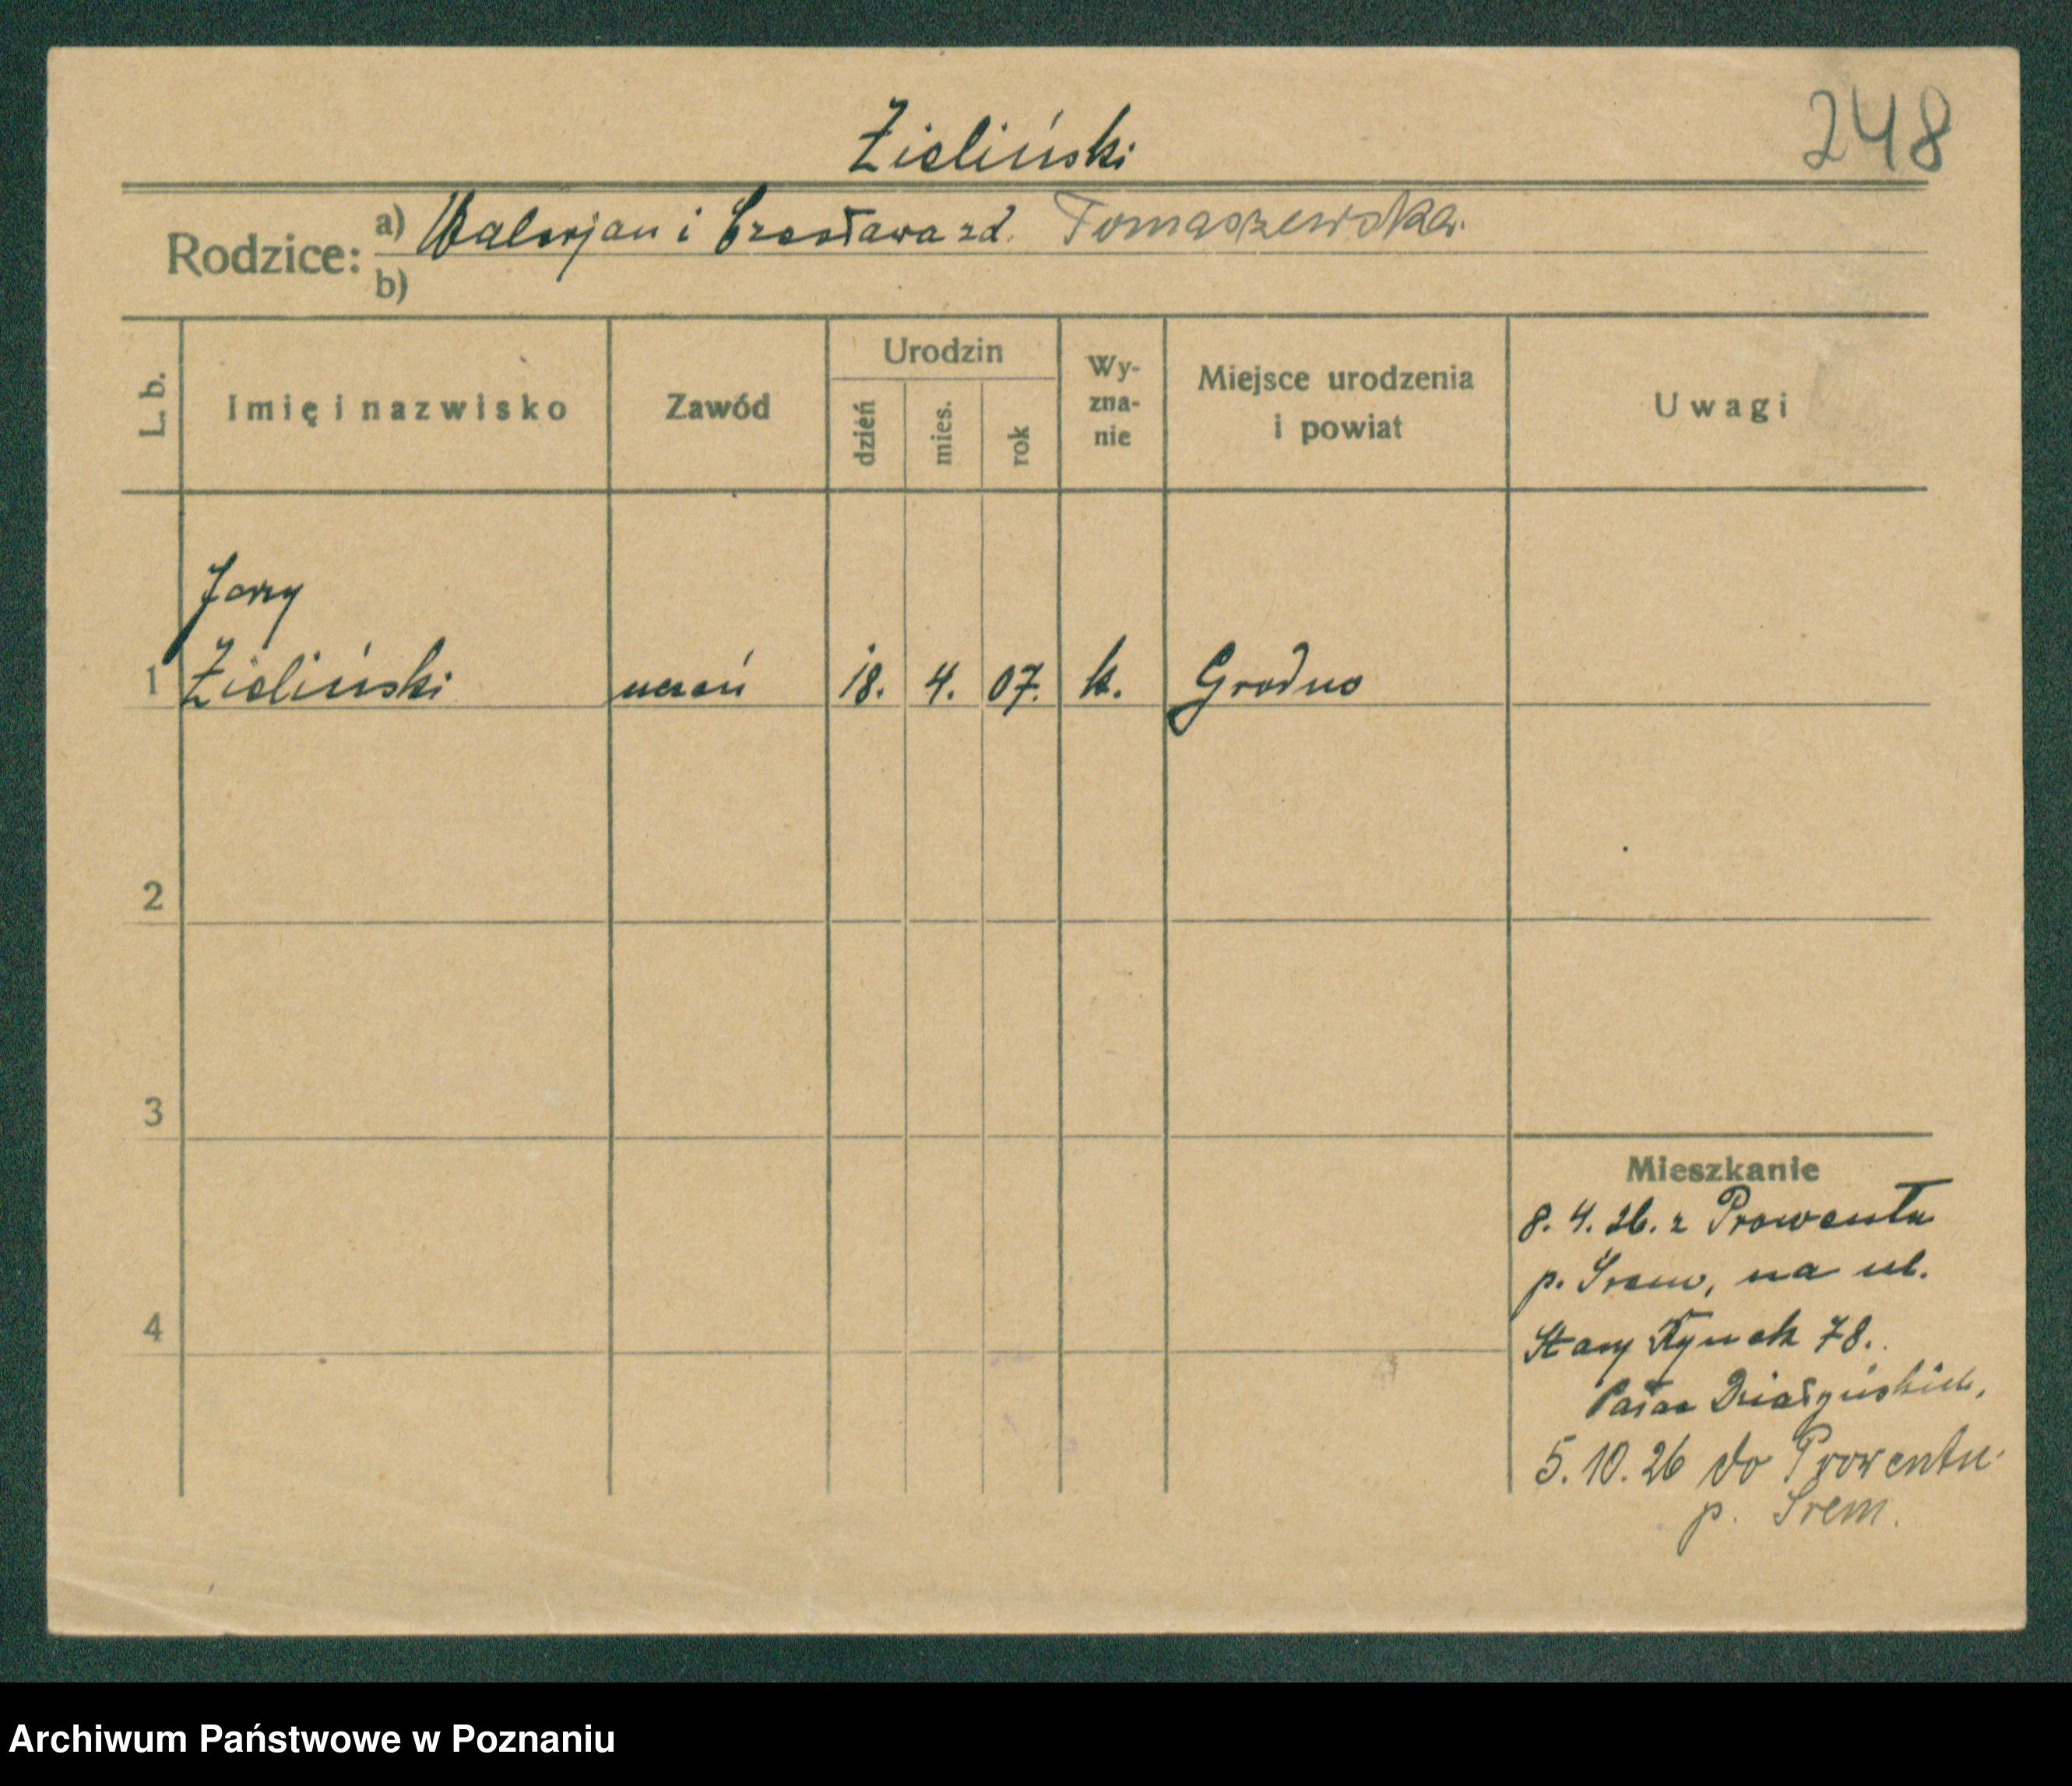 Zieliński
248
Rodzice: a) Walerjan i Czesława zd. Tomaszewska.
b)
L. b.
Imię i nazwisko
Zawód
Urodzin
dzień
mies.
rok
Wy-
zna-
nie
Miejsce urodzenia
i powiat
Uwagi
Jerzy
1 Zieliński uczeń 18. 4. 07. k. Grodno
2
3
4
Mieszkanie
8. 4. 26. z Prowentu
p. Śrem, na ul.
Stary Rynek 78.
Pałac Działyńskich.
5. 10. 26 do Prowentu
p. Śrem.
Archiwum Państwowe w Poznaniu